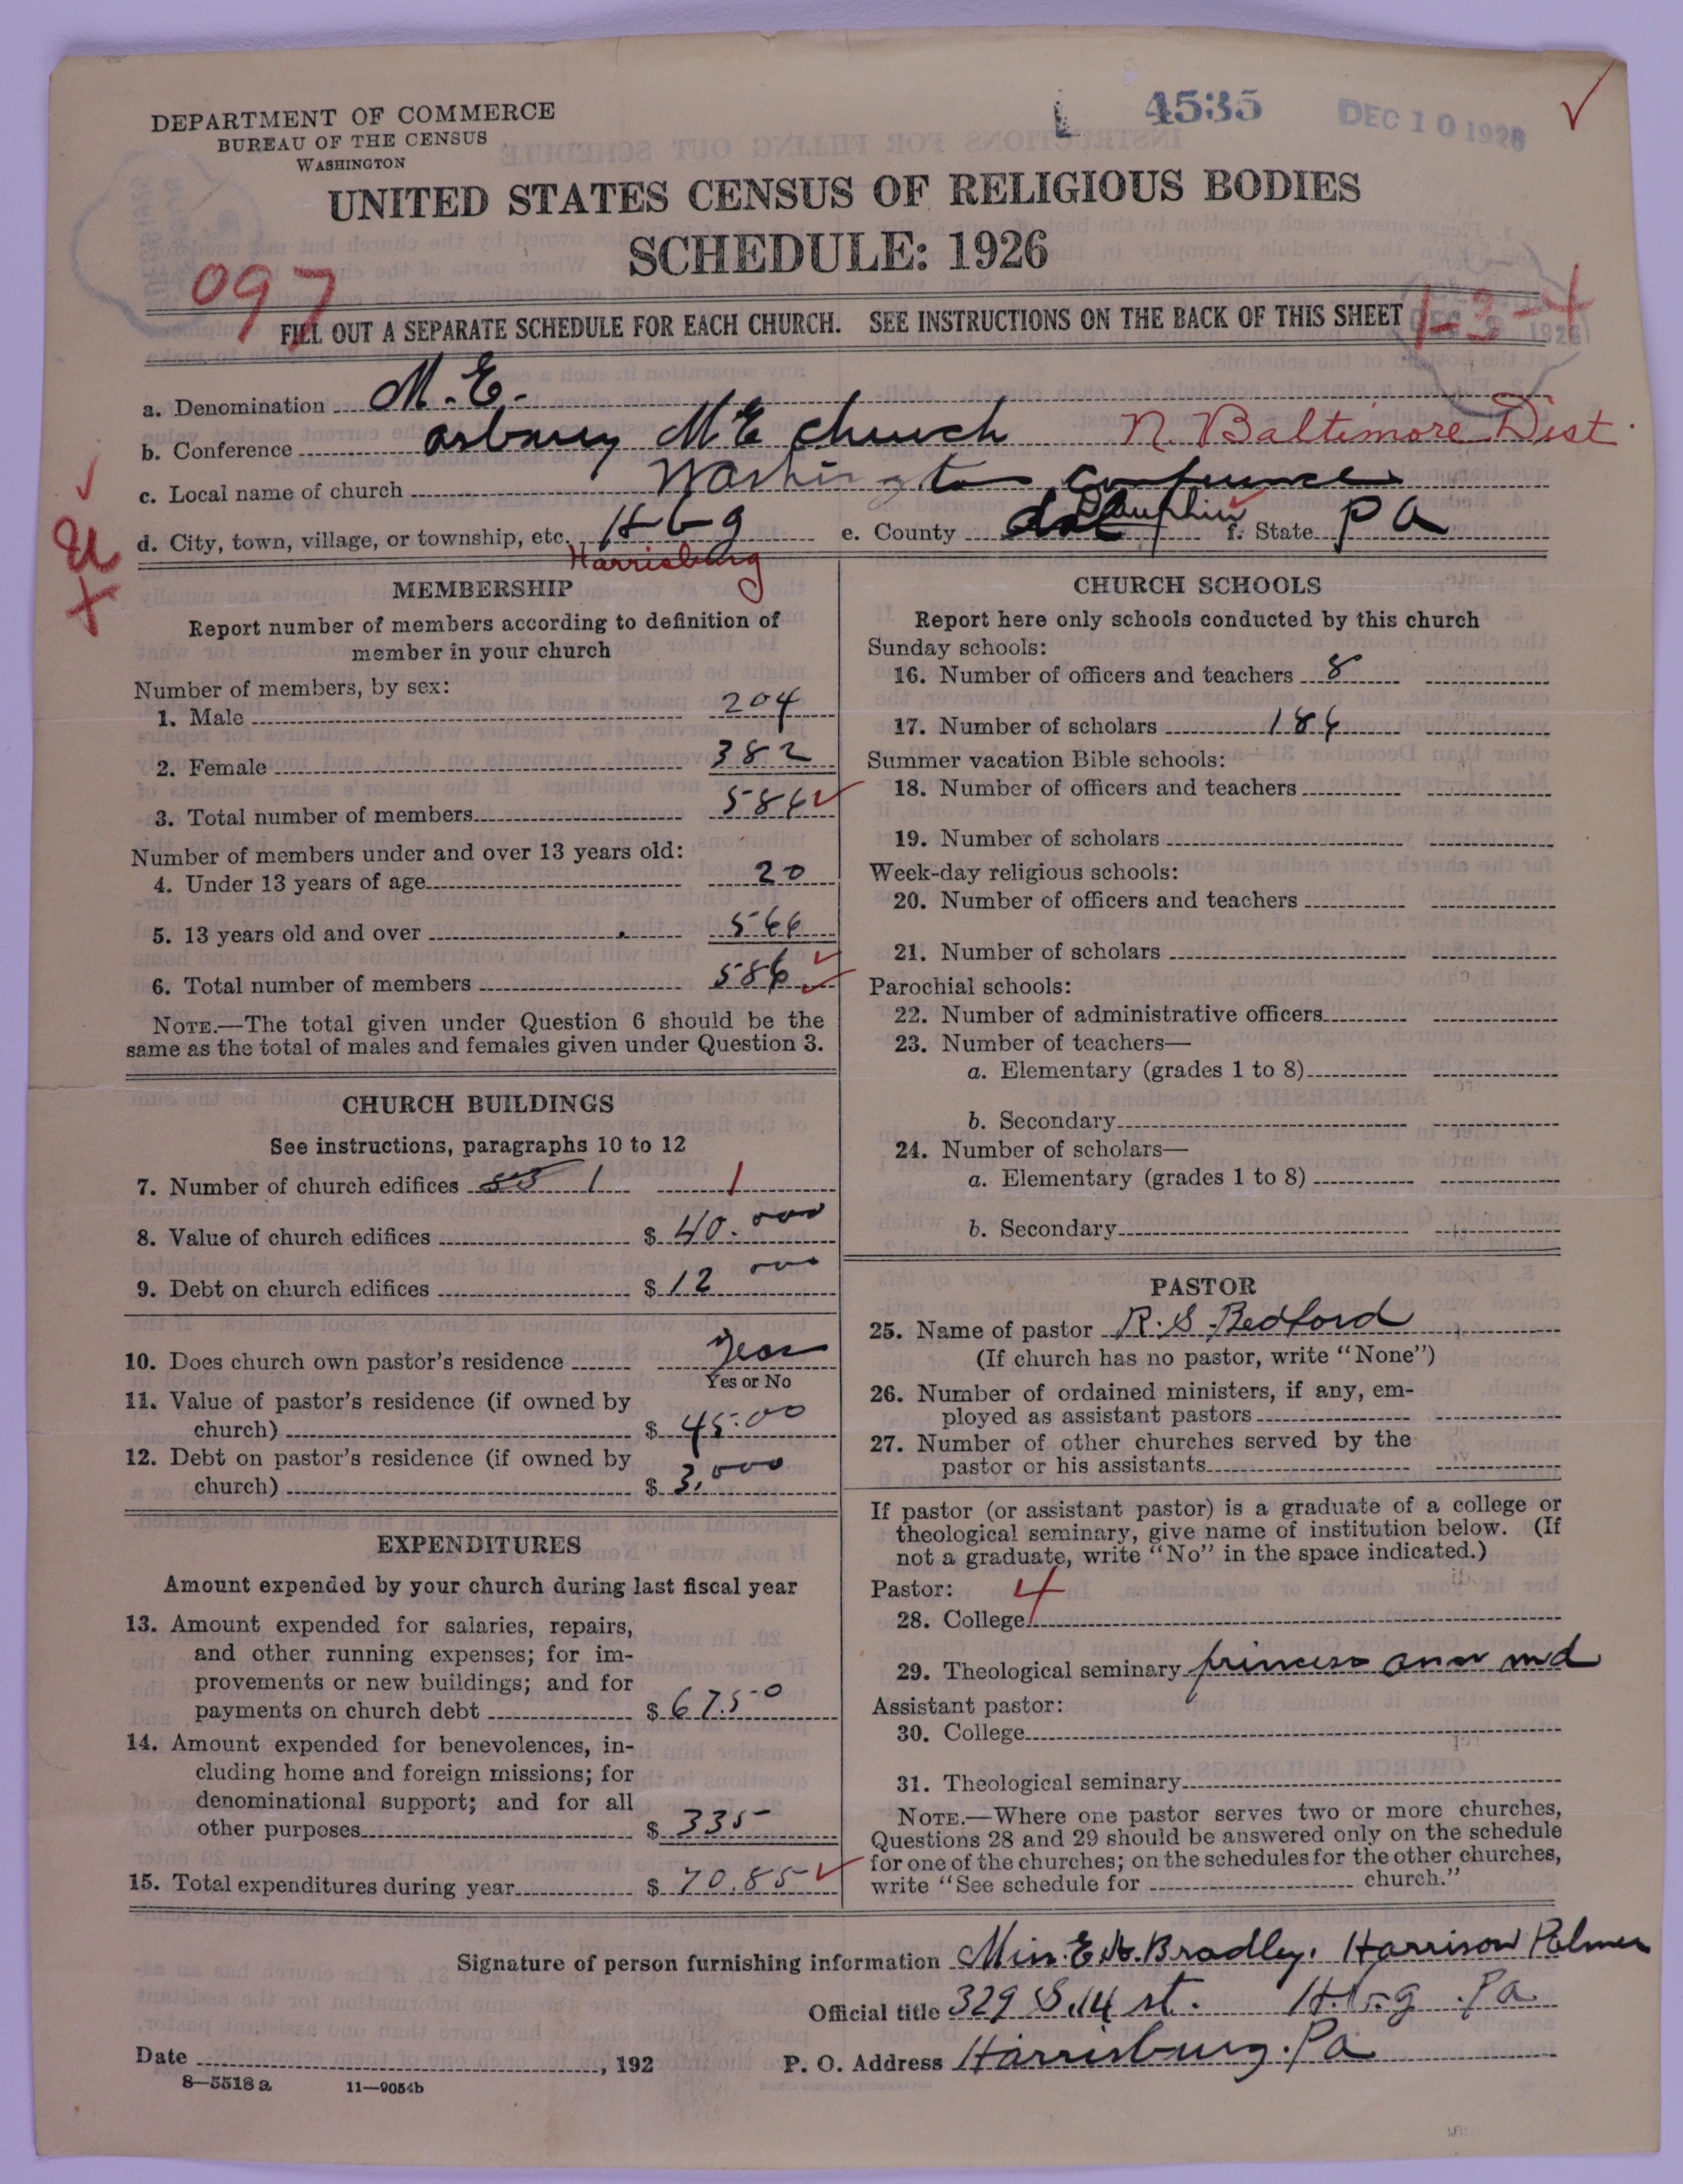 DEPARTMENT OF COMMERCE
BUREAU OF THE CENSUS
WASHINGTON
4535
DEC 10 1926
UNITED STATES CENSUS OF RELIGIOUS BODIES
SCHEDULE: 1926
097
1-3-4
FILL OUT A SEPARATE SCHEDULE FOR EACH CHURCH. SEE INSTRUCTIONS ON THE BACK OF THIS SHEET
a. Denomination M.E.
b. Conference asbury ME church N. Baltimore Dist.
c. Local name of church Washington Conference
d. City, town, village, or township, etc. Hbg e. County Dauphin f. State Pa
Harrisburg
MEMBERSHIP
Report number of members according to definition of
member in your church
Number of members, by sex:
1. Male 204
2. Female 382
3. Total number of members 586
Number of members under and over 13 years old:
4. Under 13 years of age 20
5. 13 years old and over 566
6. Total number of members 586
NOTE.—The total given under Question 6 should be the
same as the total of males and females given under Question 3.
CHURCH BUILDINGS
See instructions, paragraphs 10 to 12
7. Number of church edifices 1 1
8. Value of church edifices $ 40.000
9. Debt on church edifices $ 12 000
10. Does church own pastor's residence
Yes or No
11. Value of pastor's residence (if owned by
church) $ 45.00
12. Debt on pastor's residence (if owned by
church) $ 3,000
EXPENDITURES
Amount expended by your church during last fiscal year
13. Amount expended for salaries, repairs,
and other running expenses; for im-
provements or new buildings; and for
payments on church debt $ 67.50
14. Amount expended for benevolences, in-
cluding home and foreign missions; for
denominational support; and for all
other purposes $ 335
15. Total expenditures during year $ 70.85
CHURCH SCHOOLS
Report here only schools conducted by this church
Sunday schools:
16. Number of officers and teachers 8
17. Number of scholars 186
Summer vacation Bible schools:
18. Number of officers and teachers
19. Number of scholars
Week-day religious schools:
20. Number of officers and teachers
21. Number of scholars
Parochial schools:
22. Number of administrative officers
23. Number of teachers—
a. Elementary (grades 1 to 8)
b. Secondary
24. Number of scholars—
a. Elementary (grades 1 to 8)
b. Secondary
PASTOR
25. Name of pastor R. S. Bedford
(If church has no pastor, write "None")
26. Number of ordained ministers, if any, em-
ployed as assistant pastors
27. Number of other churches served by the
pastor or his assistants
If pastor (or assistant pastor) is a graduate of a college or
theological seminary, give name of institution below. (If
not a graduate, write "No" in the space indicated.)
Pastor: 4
28. College
29. Theological seminary princess ann md
Assistant pastor:
30. College
31. Theological seminary
NOTE.—Where one pastor serves two or more churches,
Questions 28 and 29 should be answered only on the schedule
for one of the churches; on the schedules for the other churches,
write "See schedule for church."
Signature of person furnishing information Miss. E. H. Bradley. Harrison Palmer
Official title 329 S. 14 st. Hbg Pa
Date , 192 P. O. Address Harrisburg. Pa
8—5518 a 11—9054b